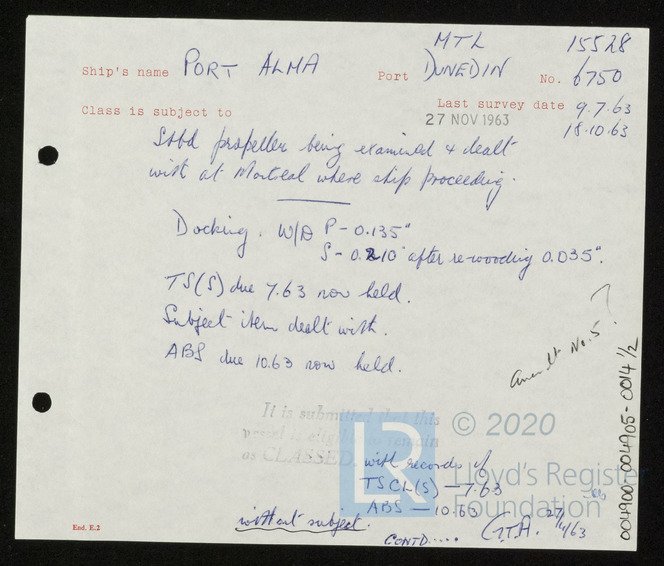 MTL 15528
Ship's name PORT ALMA Port DUNEDIN No. 6750
Class is subject to Last survey date 9.7.63
27 NOV 1963 18.10.63
Stbd propeller being examined & dealt
with at Montreal where ship proceeding.
Docking. W/D P - 0.135"
S - 0.210" after re-wooding 0.035".
TS(S) due 7.63 now held.
Subject item dealt with.
ABS due 10.63 now held.
Amendt No. 5 ?
It is submitted that this
vessel is eligible to remain
as CLASSED. with records of
TSCL(S) - 7.63
ABS - 10.63
without subject.
CONTD.... G.T.A. 27/11/63
End. E.2
LR © 2020
Lloyd's Register
Foundation
004900-004905-0014 1/2